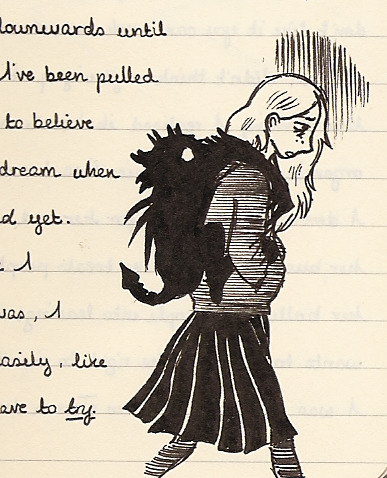 downwards until
I've been pulled
to believe
dream when
yet.
I
was, I
easily, like
have to try.